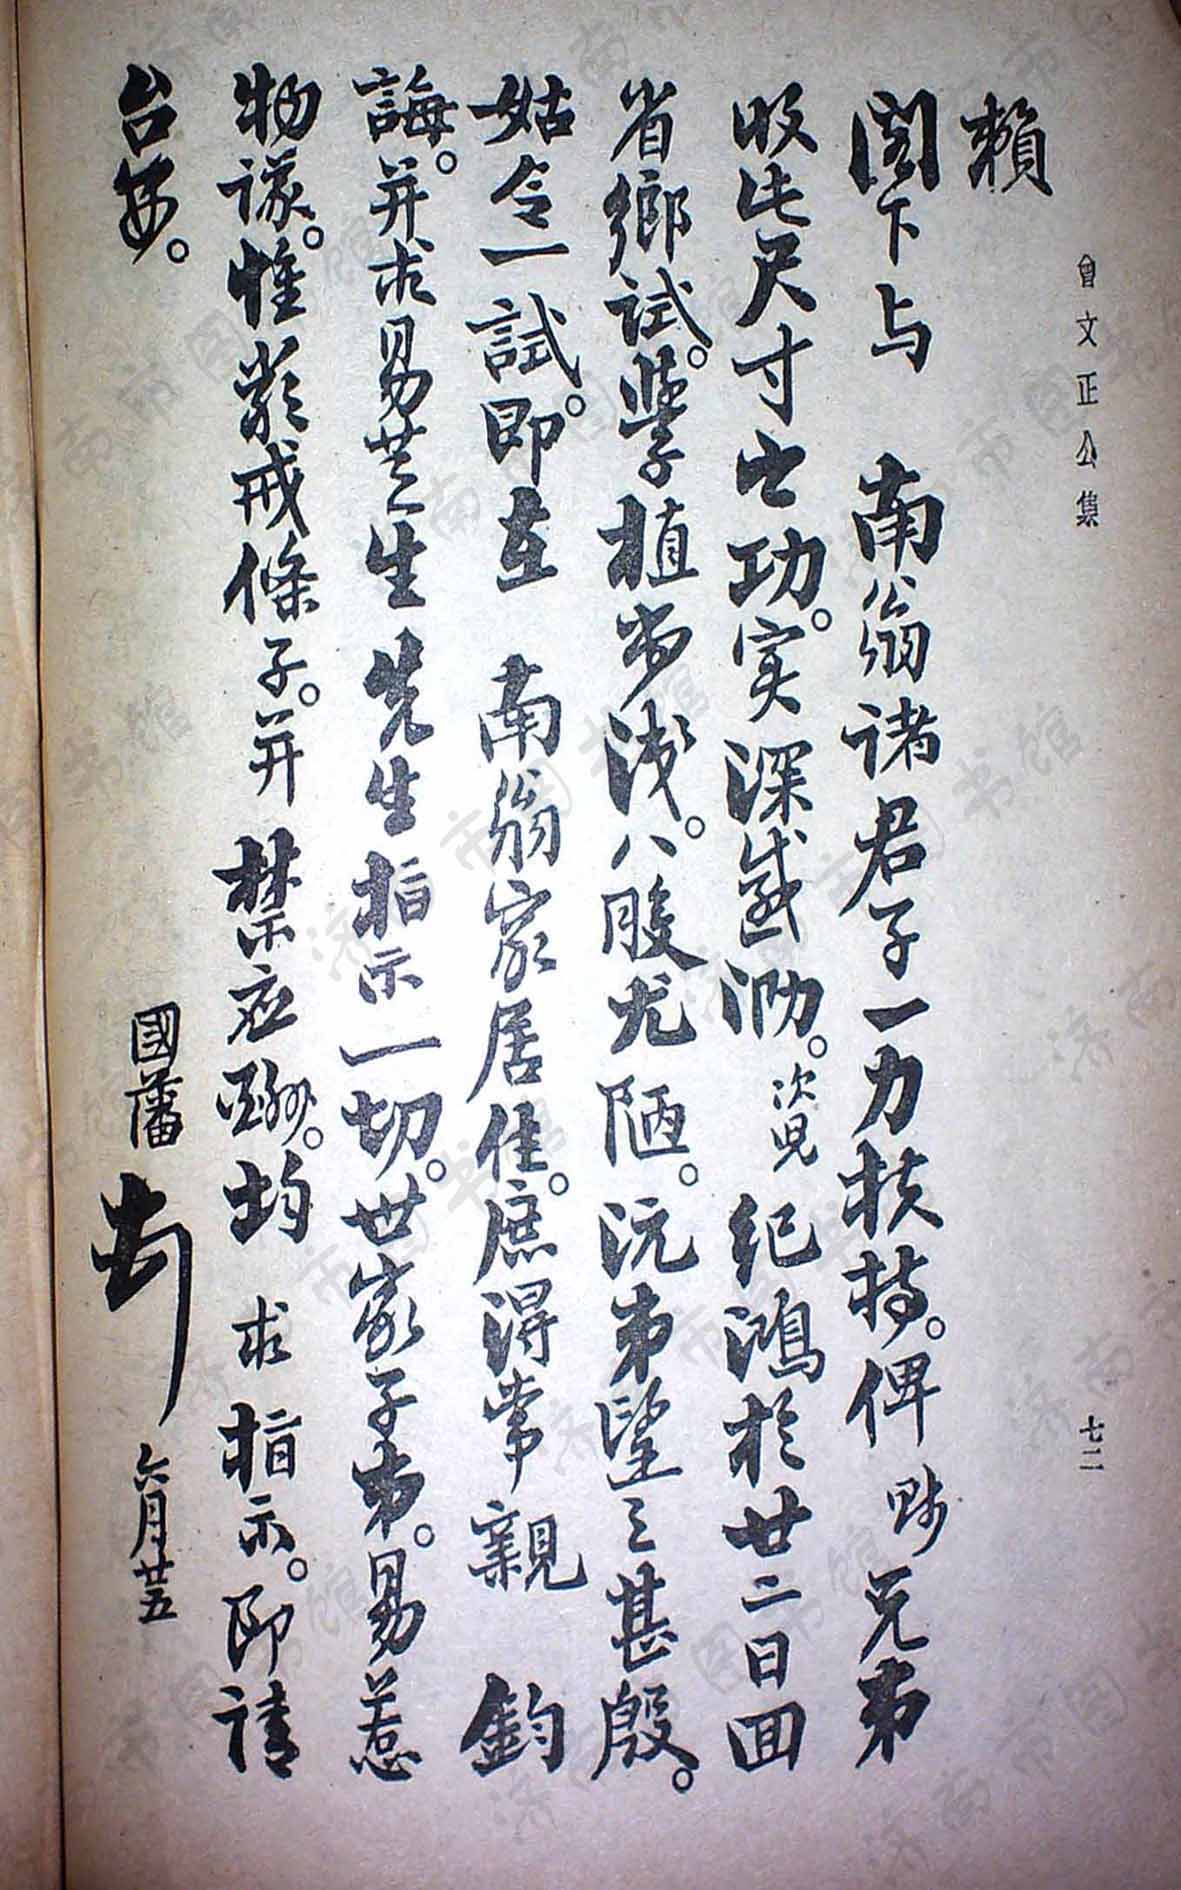 曾文正公集
七二
賴
閣下与　南翁諸君子一力扶持。俾　兄弟
收此尺寸之功。实深感泐。次兒　紀鴻於廿二日回
省鄉試。學植甚淺。八股尤陋。沅弟望之甚殷。
姑令一試。即在　南翁家居住。庶得常親　鈞
誨。并求易芝生先生指示一切。世家子弟。易惹
物議。惟嚴戒條子。并禁应酬。均　求指示。即請
台安。
國藩　六月廿五
济南市图书馆